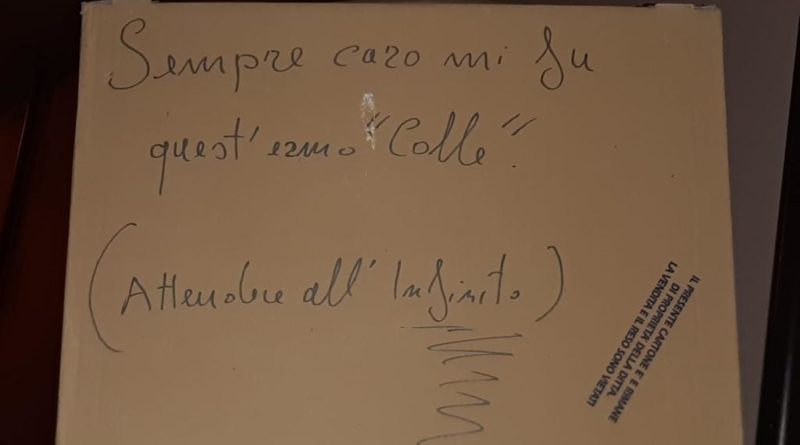 Sempre caro mi fu
quest'ermo "Colle".
(Attendere all' Infinito)
IL PRESENTE CARTONE E' E RIMANE
DI PROPRIETA' DELLA DITTA.
LA VENDITA E IL RESO SONO VIETATI